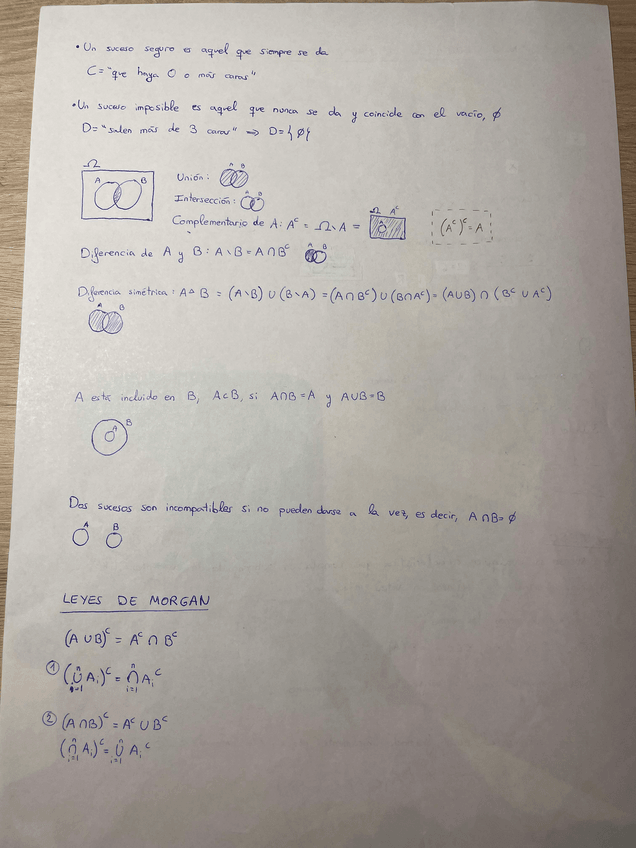 • Un suceso seguro es aquel que siempre se da
C = "que haya 0 o más caras"
• Un suceso imposible es aquel que nunca se da y coincide con el vacío, ∅
D = "salen más de 3 caras" ⇒ D = { ∅ }
Ω
A B
Unión: A B
Intersección: A B
Complementario de A: Aᶜ = Ω \ A = Ω Aᶜ A (Aᶜ)ᶜ = A
Diferencia de A y B: A \ B = A ∩ Bᶜ A B
Diferencia simétrica: A △ B = (A \ B) ∪ (B \ A) = (A ∩ Bᶜ) ∪ (B ∩ Aᶜ) = (A ∪ B) ∩ (Bᶜ ∪ Aᶜ)
A B
A está incluido en B, A ⊂ B, si A ∩ B = A y A ∪ B = B
A B
Dos sucesos son incompatibles si no pueden darse a la vez, es decir, A ∩ B = ∅
A B
LEYES DE MORGAN
(A ∪ B)ᶜ = Aᶜ ∩ Bᶜ
① (⋃ⁿᵢ₌₁ Aᵢ)ᶜ = ⋂ⁿᵢ₌₁ Aᵢᶜ
② (A ∩ B)ᶜ = Aᶜ ∪ Bᶜ
(⋂ⁿᵢ₌₁ Aᵢ)ᶜ = ⋃ⁿᵢ₌₁ Aᵢᶜ